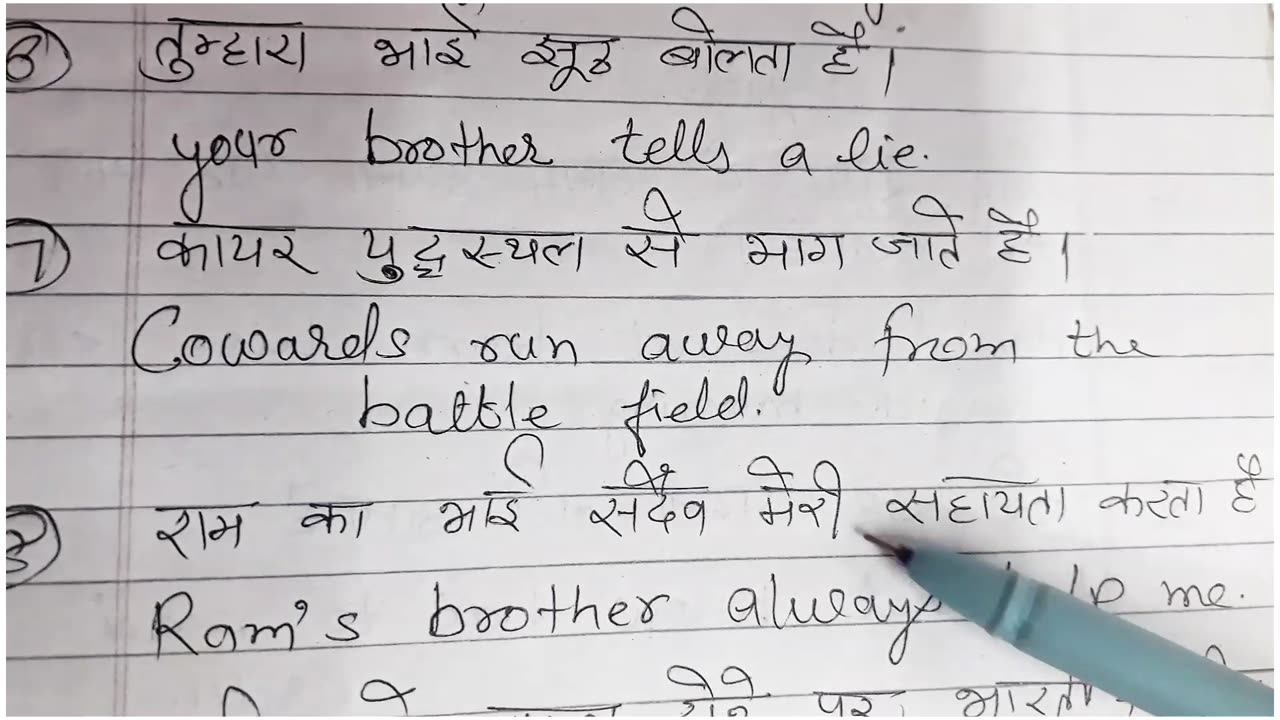 6 तुम्हारा भाई झूठ बोलता है।
your brother tells a lie.
7 कायर युद्धस्थल से भाग जाते है।
Cowards run away from the
battle field.
8 राम का भाई सदैव मेरी सहायता करता है
Ram's brother always me.
पर